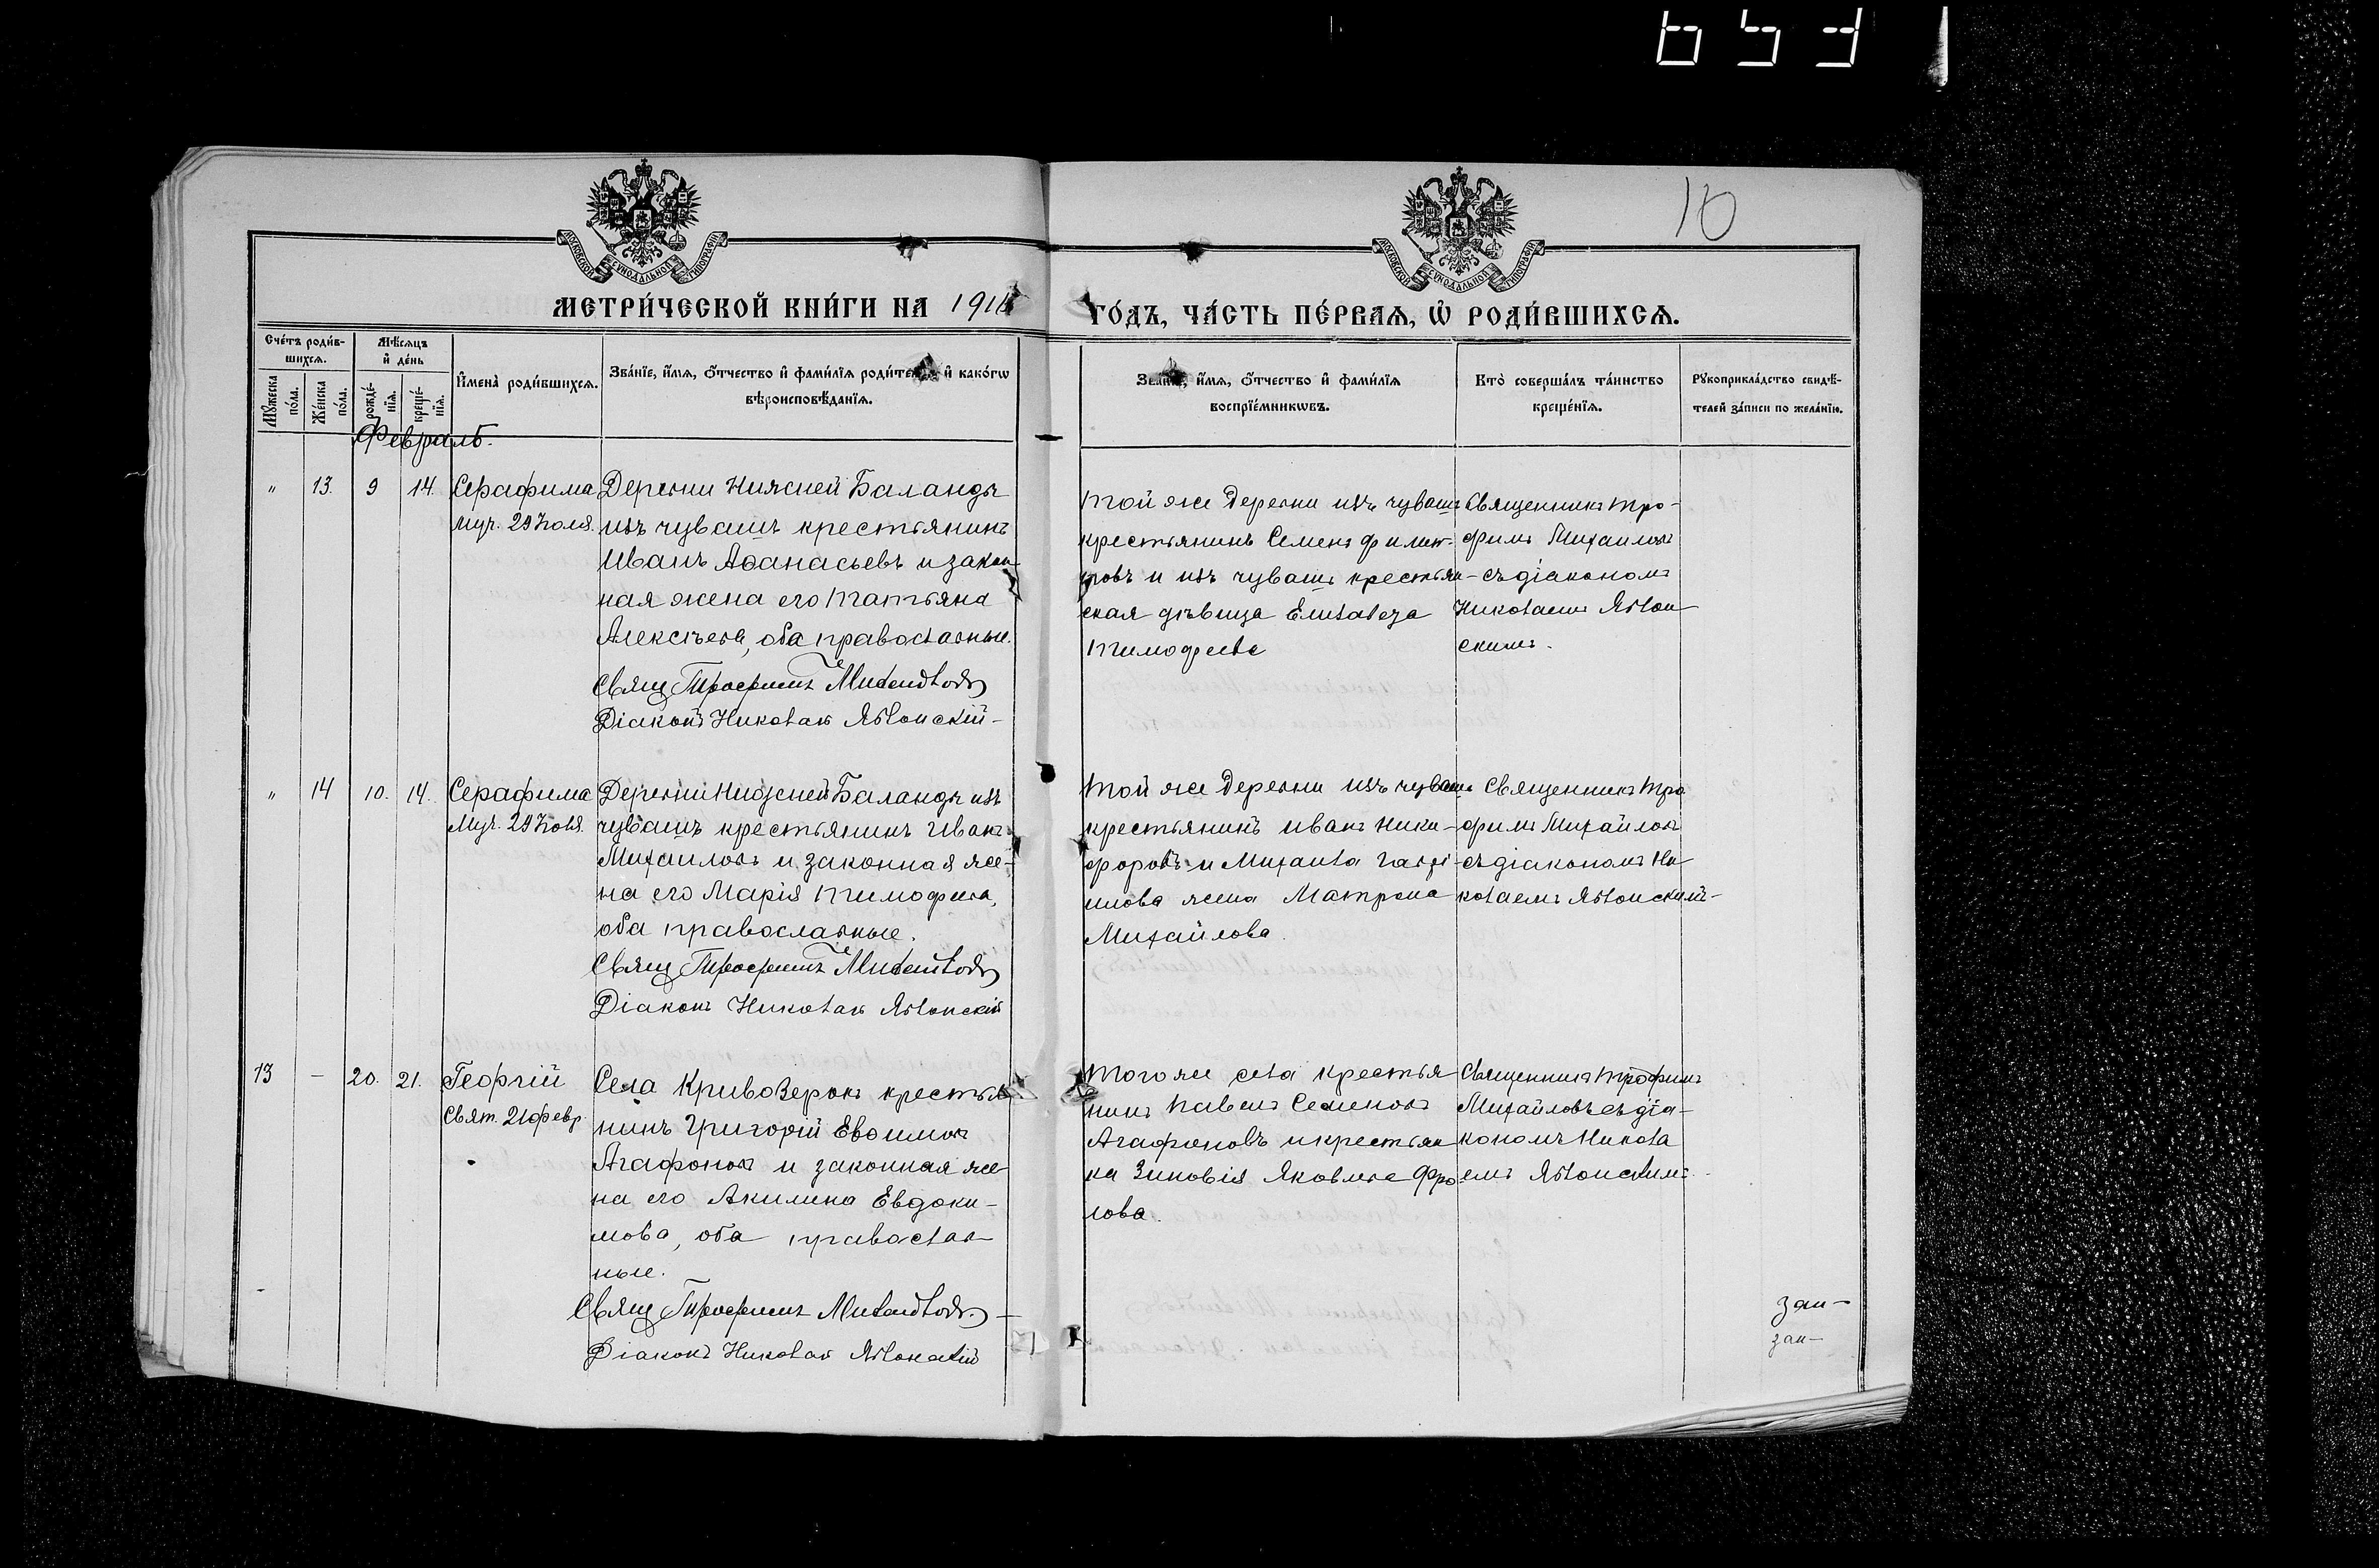 10
МОСКОВСКОЙ СУНОДАЛЬНОЙ ТИПОГРАФІИ
МОСКОВСКОЙ СУНОДАЛЬНОЙ ТИПОГРАФІИ
МЕТРИ́ЧЕСКОЙ КНИ́ГИ НА 191
ГО́ДЪ, ЧА́СТЬ ПЕ́РВАѦ, Ѡ҆ РОДИ́ВШИХСѦ.
Сче́тъ роди́в-
шихсѧ.
Мꙋ́жеска
по́ла.
Же́нска
по́ла.
Мѣ́сѧцъ
и҆ де́нь
рожде́-
нїѧ.
креще́-
нїѧ.
И҆мена̀ роди́вшихсѧ.
Зва́нїе, и҆́мѧ, ѻ҆́тчество и҆ фами́лїѧ роди́теле и҆ како́гѡ
вѣроисповѣ́данїѧ.
Зва́нїе, и҆́мѧ, ѻ҆́тчество и҆ фами́лїѧ
воспрїе́мникѡвъ.
Кто̀ соверша́лъ та́инство
креще́нїѧ.
Рꙋкоприкла́дство свидѣ́-
телей за́писи по жела́нїю.
Февраль.
" 13. 9 14. Серафима
муч. 29 Іюля.
Деревни Нижней Баланды
изъ чувашъ крестьянинъ
Иванъ Аѳанасьевъ и закон
ная жена его Татьяна
Алексѣева, оба православные.
Свящ Трофимъ Михайловъ
Діаконъ Николай Яблонскій-
Той же деревни изъ чувашъ
крестьянинъ Семенъ
и изъ чувашъ крестьян-
ская дѣвица Елизавета
Тимофеева
Священникъ Тро-
фимъ Михаиловъ
съ діакономъ
Николаемъ Яблон-
скимъ.
" 14 10. 14. Серафима
Муч. 29 Іюля.
Деревни Нижней Баланды изъ
чувашъ крестьянинъ Иванъ
Михаиловъ и законная же-
на его Марія Тимофеева,
оба православные.
Свящ Трофимъ Михайловъ
Діаконъ Николай Яблонскій
Той же деревни изъ чувашъ
крестьянинъ Иванъ Ники-
форовъ и Михаила
жена Матрона
Михайлова
Священникъ Тро
фимъ Михайловъ
съ діакономъ Ни
колаемъ Яблонскимъ-
13 — 20. 21. Георгій
Свят. 21 февр
Села Кривозерокъ крестья
нинъ Григорій Евѳимовъ
Агафоновъ и законная же-
на его Акилина Евдоки-
мова, оба православ-
ные.
Свящ Трофимъ Михайловъ.-
Діаконъ Николай Яблонскій
Того же села крестья
нинъ Павелъ Семеновъ
Агафоновъ и крестьян
ка Зиновія Яковлева Фро
лова.
Священникъ Трофимъ
Михайловъ съ діа-
кономъ Никола
емъ Яблонскимъ.